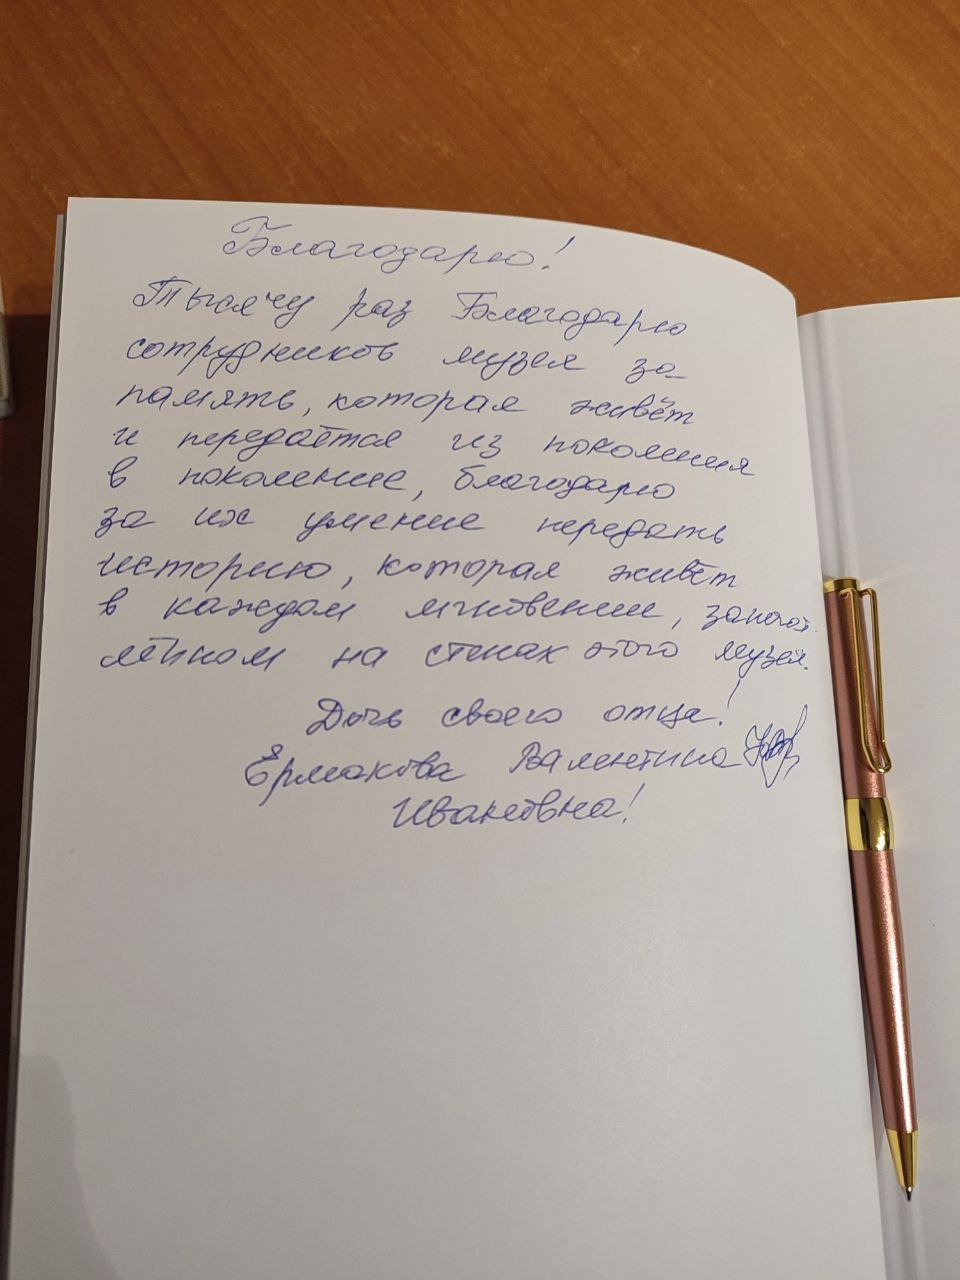 Благодарю!
Тысячу раз Благодарю
сотрудников музея за
память, которая живёт
и передаётся из поколения
в поколение, благодарю
за их умение передать
историю, которая живёт
в каждом мгновении,
на стенах этого музея.
Дочь своего отца!
Ермакова Валентина
Ивановна!